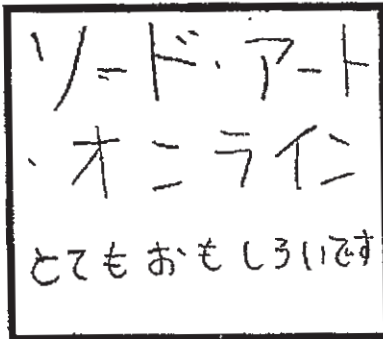 ソード・アート
・オンライン
とてもおもしろいです